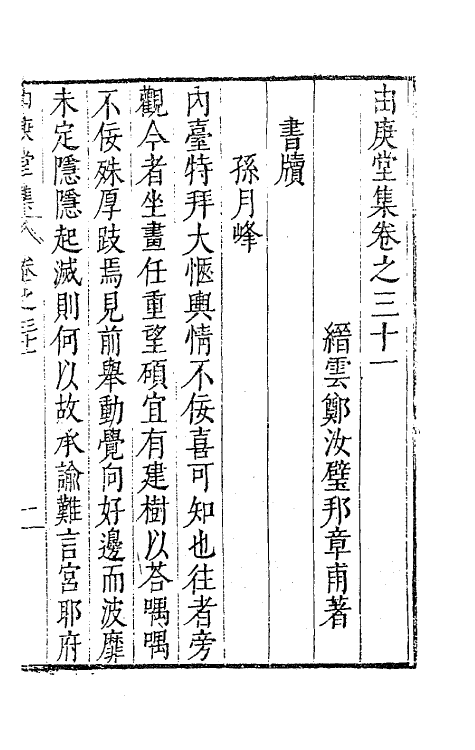 由庚堂集卷之三十一
縉雲鄭汝璧邦章甫著
書牘
孫月峰
內臺特拜大愜輿情不佞喜可知也往者旁
觀今者坐畫任重望碩宜有建樹以荅喁喁
不佞殊厚跂焉見前舉動覺向好邊而波靡
未定隱隱起滅則何以故承諭難言宮耶府
由庚堂集 卷之三十一 一